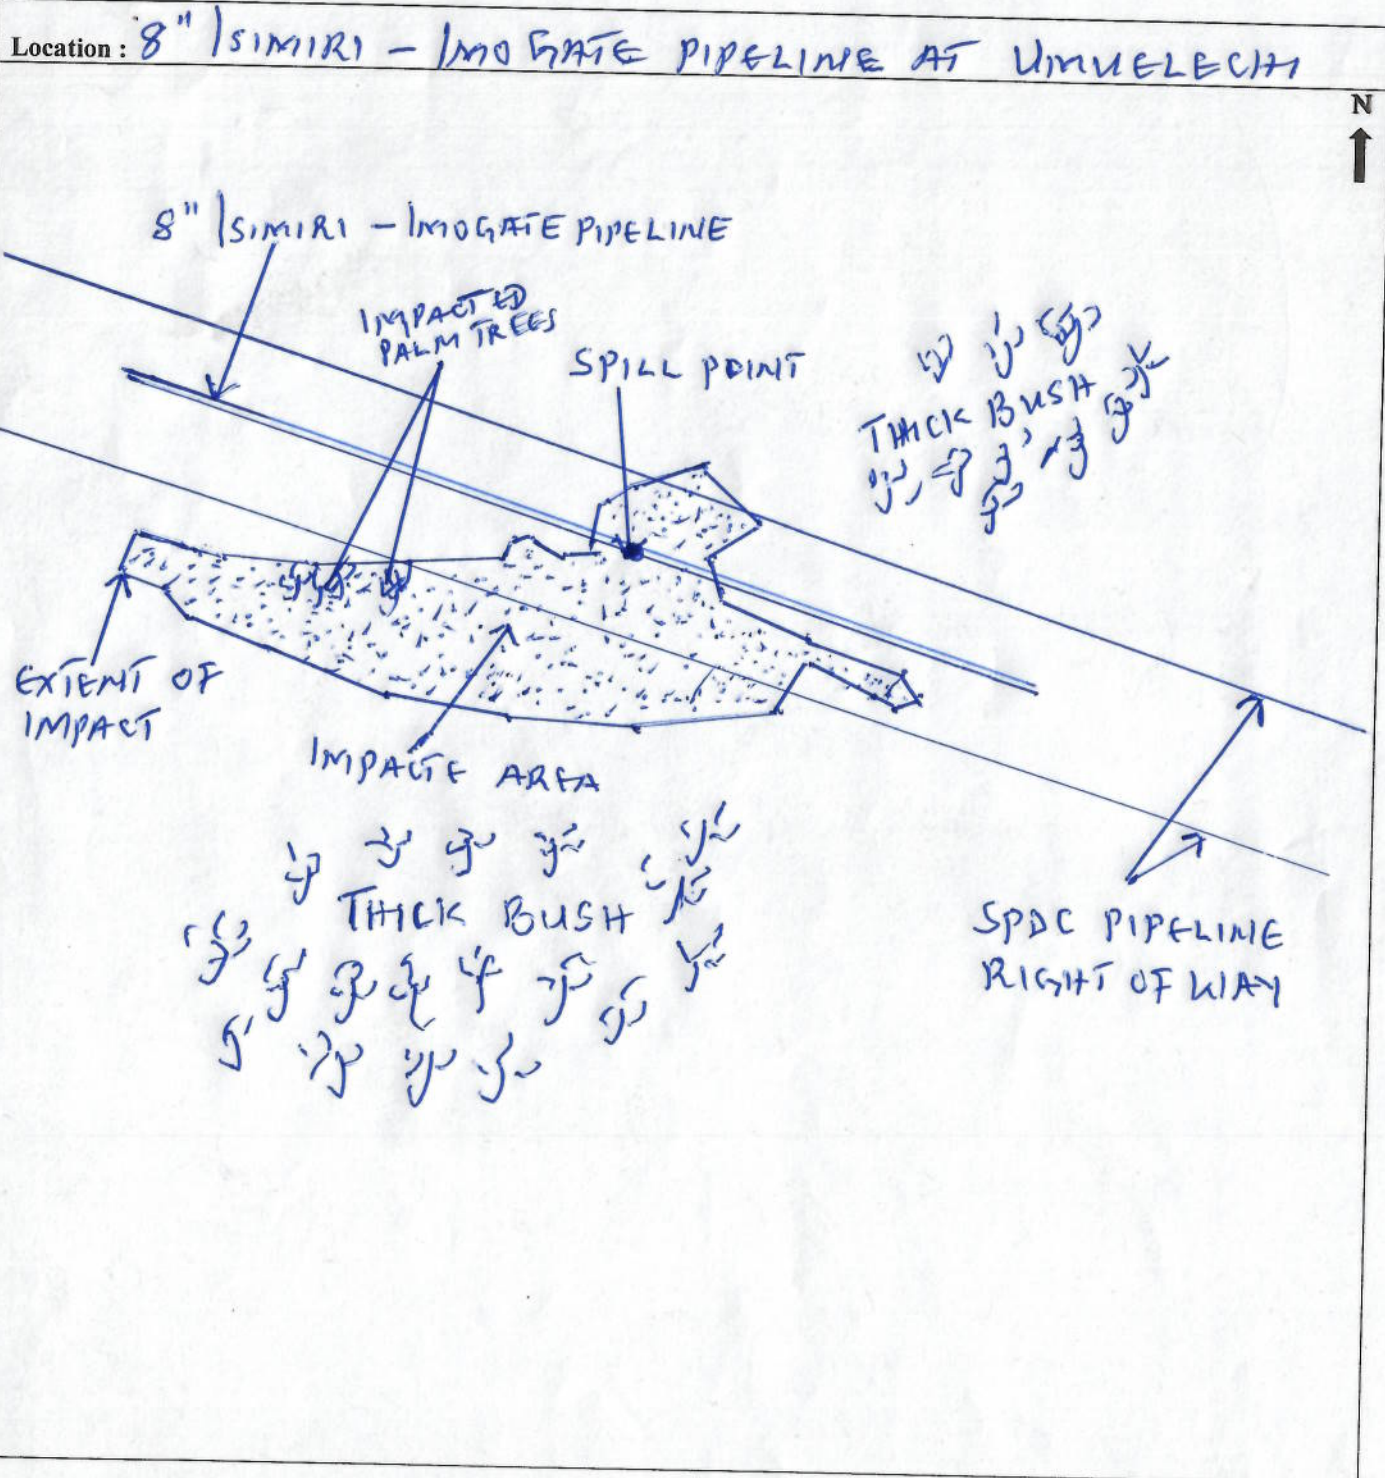 Location : 8" ISIMIRI - IMOGATE PIPELINE AT UMUELECHI
N
8" ISIMIRI - IMOGATE PIPELINE
IMPACTED
PALM TREES
SPILL POINT
THICK BUSH
EXTENT OF
IMPACT
IMPACTE AREA
THICK BUSH
SPDC PIPELINE
RIGHT OF WAY